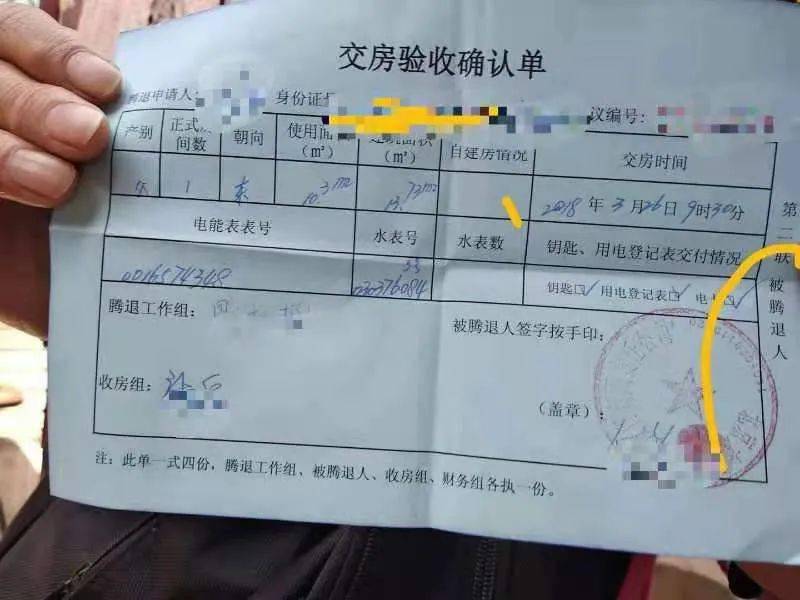 交房验收确认单
腾退申请人:
身份证
议编号:
产别
正式
间数
朝向
使用面
(㎡)
建筑面积
(㎡)
自建房情况
交房时间
1
东
10.3m2
13.73m2
2018年3月26日9时30分
电能表表号
水表号
水表数
钥匙、用电登记表交付情况
0016574348
030376084
钥匙☑ 用电登记表☑ 电卡☑
腾退工作组:
被腾退人签字按手印:
收房组:
(盖章):
注:此单一式四份,腾退工作组、被腾退人、收房组、财务组各执一份。
第二联 被腾退人